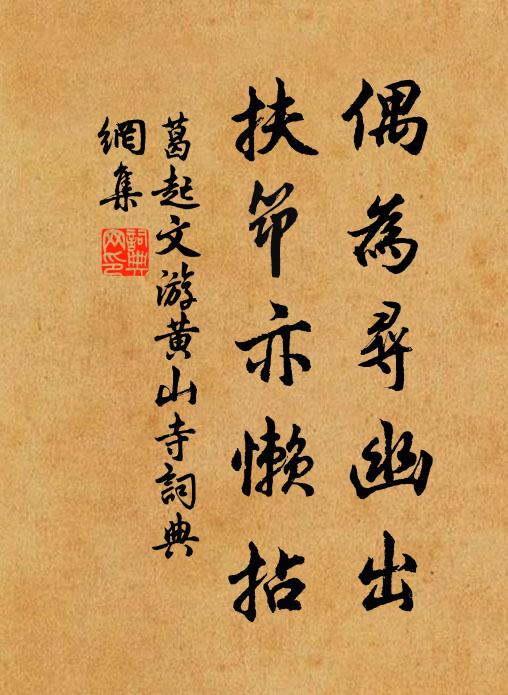 偶為尋幽出
扶筇亦懶拈
葛起文游黄山寺詞典
網集
詞典網印